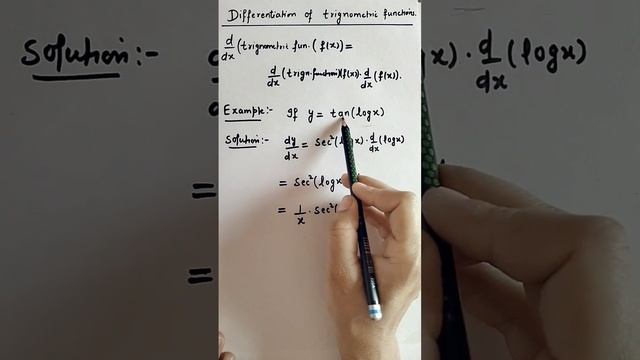 Differentiation of trignometric functions.
d/dx (trignometric fun. (f(x)) =
d/dx (trign. function)(f(x)) · d/dx (f(x)).
Example:- If y = tan(logx)
Solution:- dy/dx = Sec²(logx) · d/dx (logx)
= Sec²(log
= 1/x · Sec²(
Solution:-
x) · d/dx (logx)
=
=